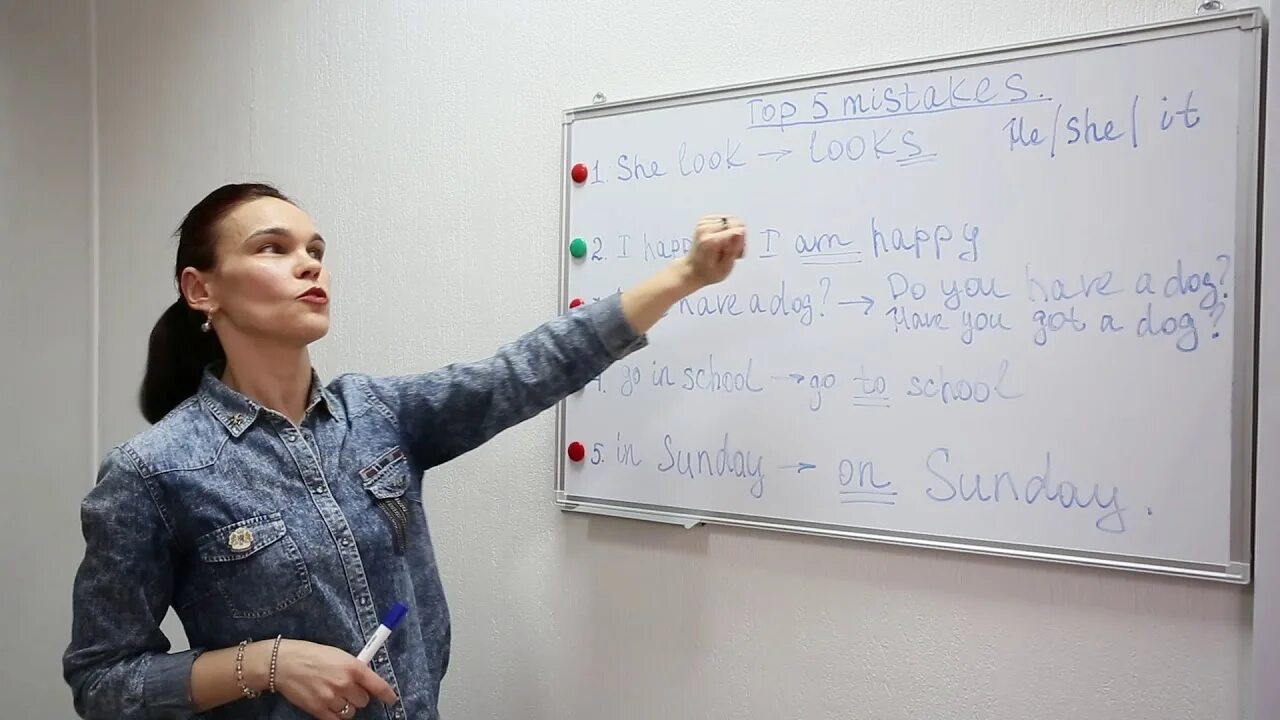 Top 5 mistakes.
1. She look → looks He/she/it
2. I happ I am happy
have a dog? → Do you have a dog?
Have you got a dog?
4. go in school → go to school
5. in Sunday → on Sunday.